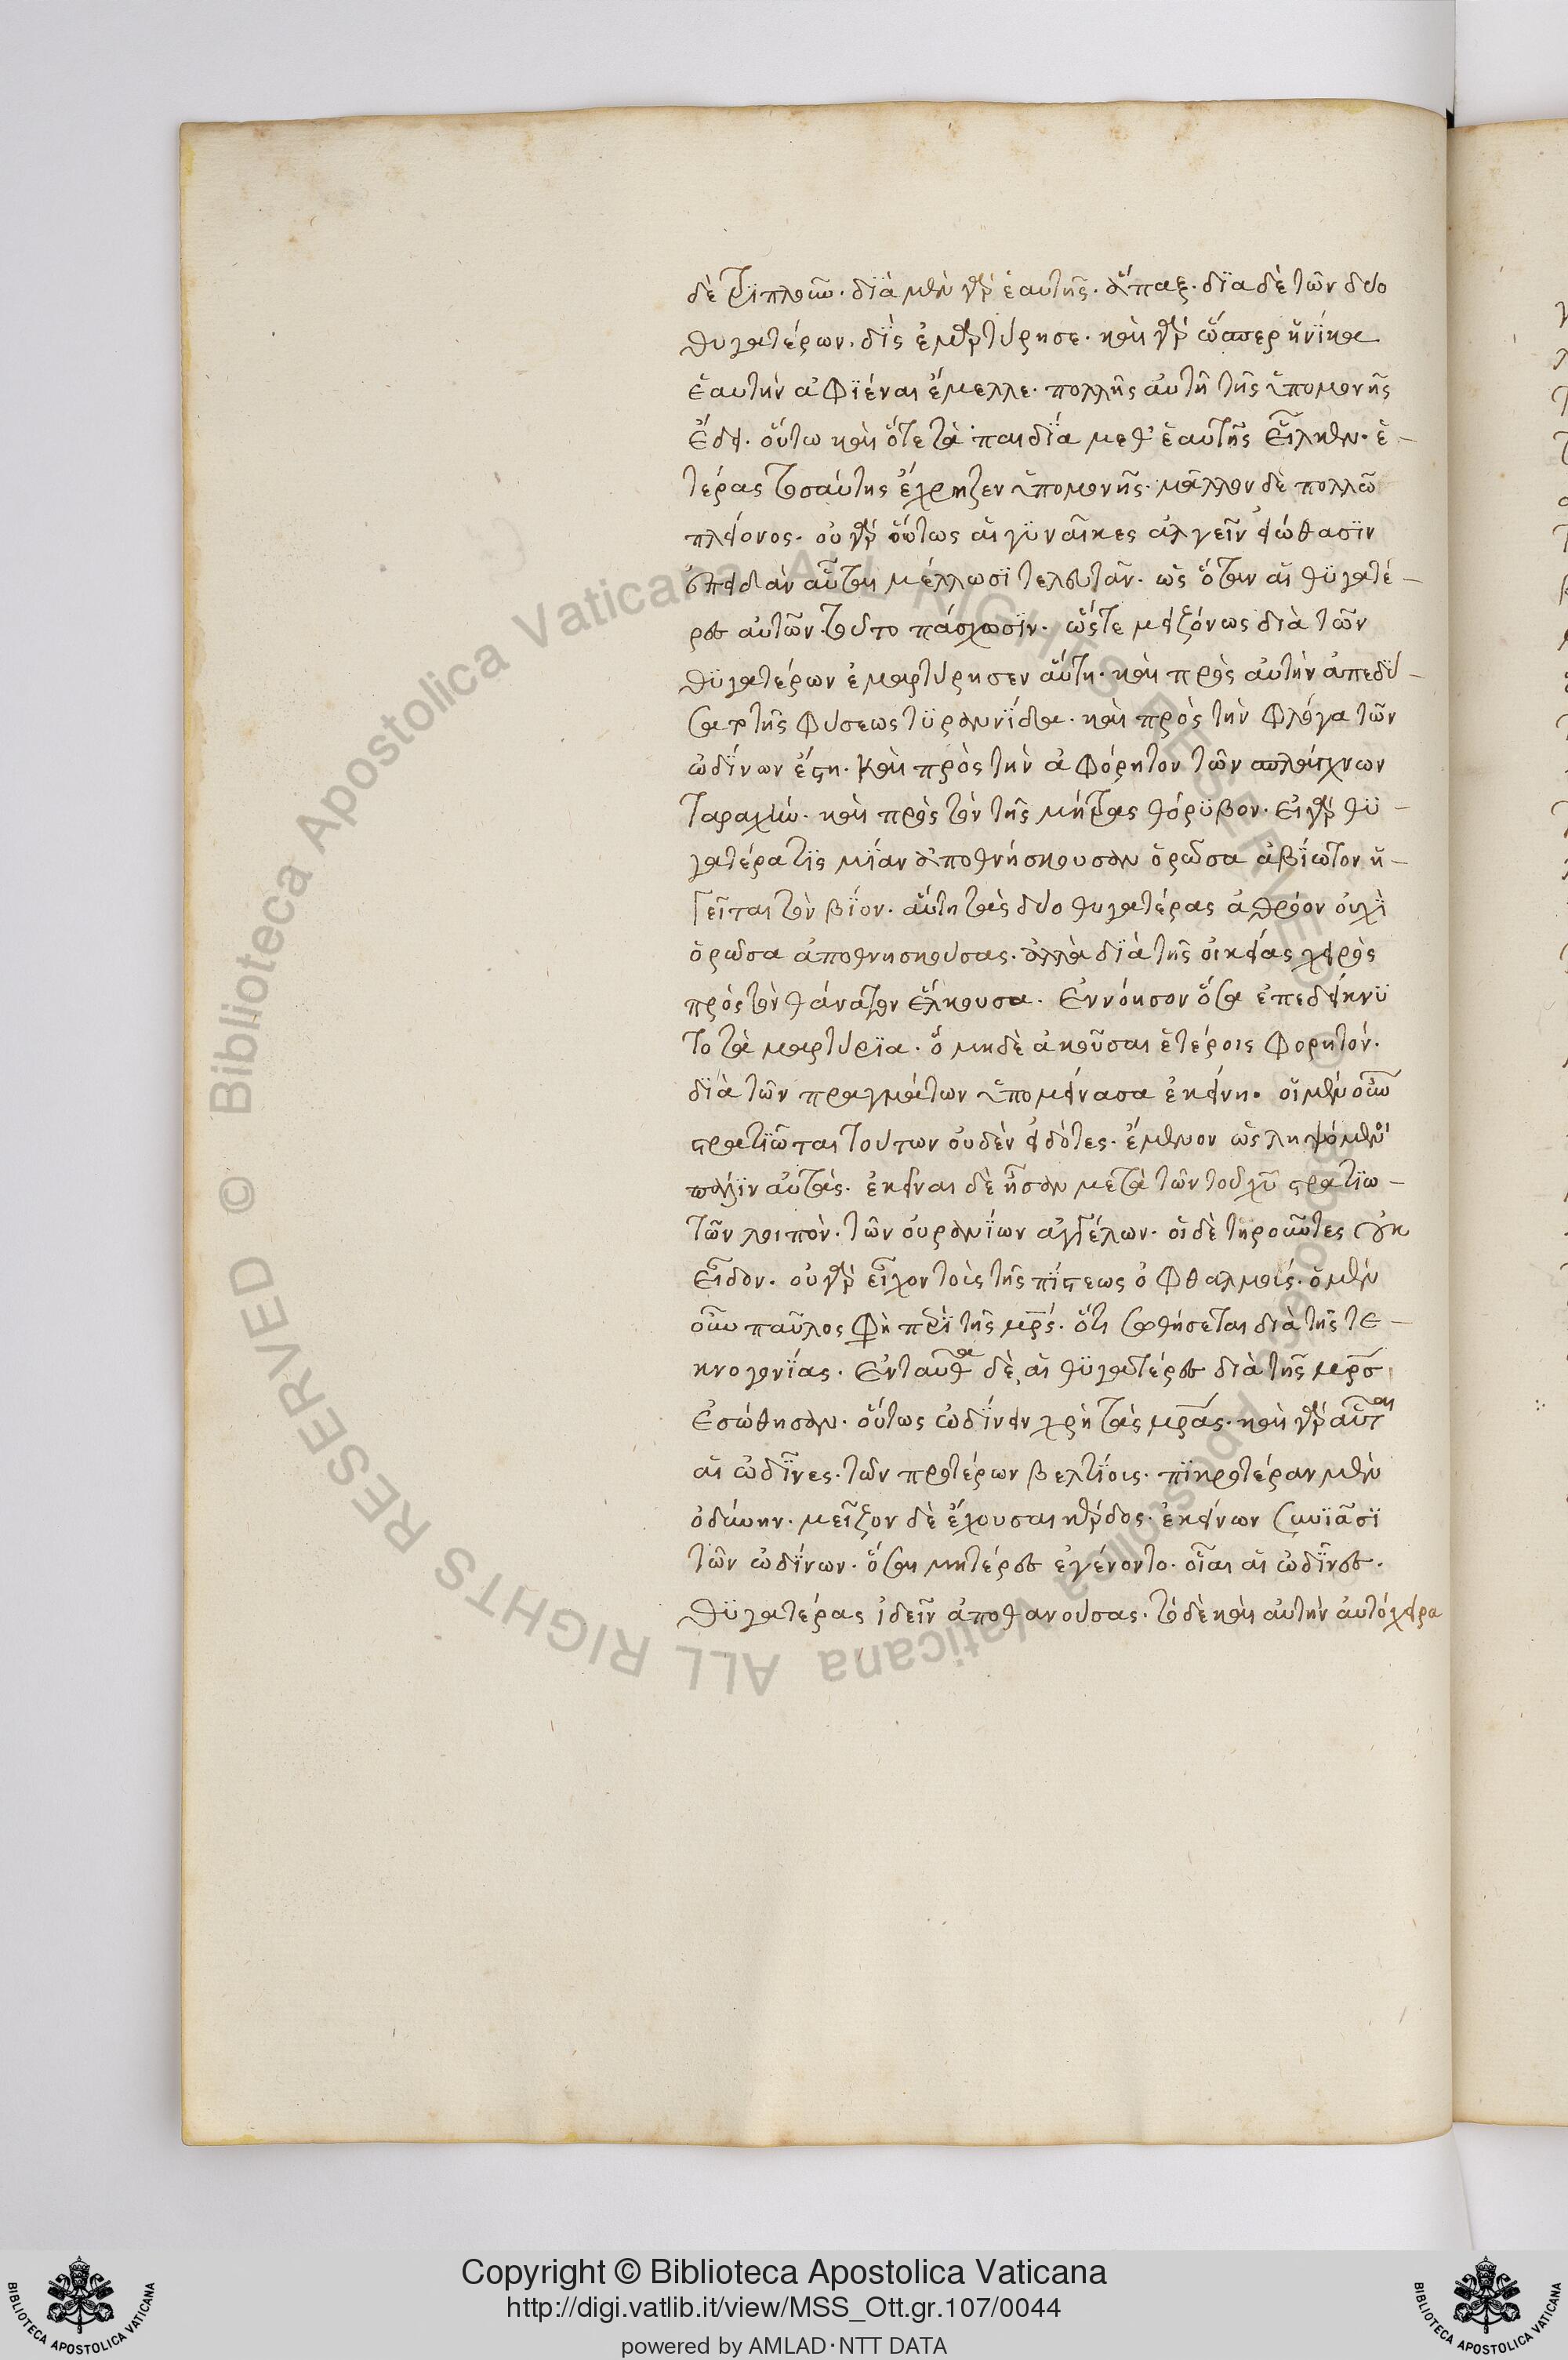 δὲ τριπλοῦν. διὰ μὲν γὰρ ἑαυτῆς. ἅπαξ. διὰ δὲ τῶν δύο
θυγατέρων. δὶς ἐμαρτύρησε. καὶ γὰρ ὥσπερ ἡνίκα
ἑαυτὴν ἀφϊέναι ἔμελλε. πολλῆς αὐτῆ τῆς ὑπομονῆς
ἔδει. οὕτω καὶ ὅτε τὰ παιδία μεθ' ἑαυτῆς εἷλκεν. ἑ-
τέρας τοσαύτης ἔχρηζεν ὑπομονῆς. μᾶλλον δὲ πολλῶ
πλείονος. οὐ γὰρ οὕτως αἱ γϋναῖκες ἀλγεῖν εἰώθασϊν
ἐπειδὰν αὗται μέλλωσϊ τελευτᾶν. ὡς ὅταν αἱ θϋγατέ-
ρες αὐτῶν τοῦτο πάσχωσϊν. ὥστε μειζόνως διὰ τῶν
θϋγατέρων ἐμαρτύρησεν αὕτη. καὶ πρὸς αὐτὴν ἀπεδύ-
σατο τῆς φύσεως τϋραννίδα. καὶ πρὸς τὴν φλόγα τῶν
ὠδίνων ἔστη. καὶ πρὸς τὴν ἀφόρητον τῶν σπλάγχνων
ταραχὴν. καὶ πρὸς τὸν τῆς μήτρας θόρϋβον. εἰ γὰρ θϋ-
γατέρα τϊς μίαν ἀποθνήσκουσαν ὁρῶσα ἀβίωτον ἡ-
γεῖται τὸν βίον. αὕτη τὰς δύο θυγατέρας ἀθρόον οὐχὶ
ὁρῶσα ἀποθνησκούσας. ἀλλὰ διὰ τῆς οἰκείας χειρὸς
πρὸς τὸν θάνατον ἕλκουσα. Ἐννόησον ὅσα ἐπεδείκνϋ
το τὰ μαρτύρϊα. ὃ μηδὲ ἀκοῦσαι ἑτέροις φορητόν.
διὰ τῶν πραγμάτων ὑπομείνασα ἐκείνη. οἱ μὲν οὖν
στρατϊῶται τούτων οὐδὲν εἰδότες. ἔμενον ὡς ληψόμενοι
πάλϊν αὐτάς. ἐκεῖναι δὲ ἦσαν μετὰ τῶν τοῦ χυ στρατϊω-
τῶν λοιπὸν. τῶν οὐρανίων ἀγγέλων. οἱ δὲ τηροῦντες οὐκ
εἶδον. οὐ γὰρ εἶχον τοὺς τῆς πίστεως ὀφθαλμούς. ὁ μὲν
οὖν παῦλος φη περὶ τῆς μρς. ὅτι σωθήσεται διὰ τῆς τε-
κνογονίας. Ἐνταῦθα δὲ, αἱ θϋγατέρες διὰ τῆς μρς
ἐσώθησαν. οὕτως ὠδίνειν χρὴ τὰς μρας. καὶ γὰρ αὗται
αἱ ὠδῖνες. τῶν προτέρων βελτίοις. πικροτέραν μὲν
ὀδύνην. μεῖζον δὲ ἔχουσαι κέρδος. ἐκείνων συνϊᾶσϊ
τῶν ὠδίνων. ὅσαι μητέρες ἐγένοντο. οἷαι αἱ ὠδῖνες.
θϋγατέρας ἰδεῖν ἀποθανούσας. τὸ δὲ καὶ αὐτὴν αὐτόχειρα
Biblioteca Apostolica Vaticana ALL RIGHTS RESERVED ©
Copyright © Biblioteca Apostolica Vaticana
http://digi.vatlib.it/view/MSS_Ott.gr.107/0044
powered by AMLAD·NTT DATA
BIBLIOTECA APOSTOLICA VATICANA
BIBLIOTECA APOSTOLICA VATICANA